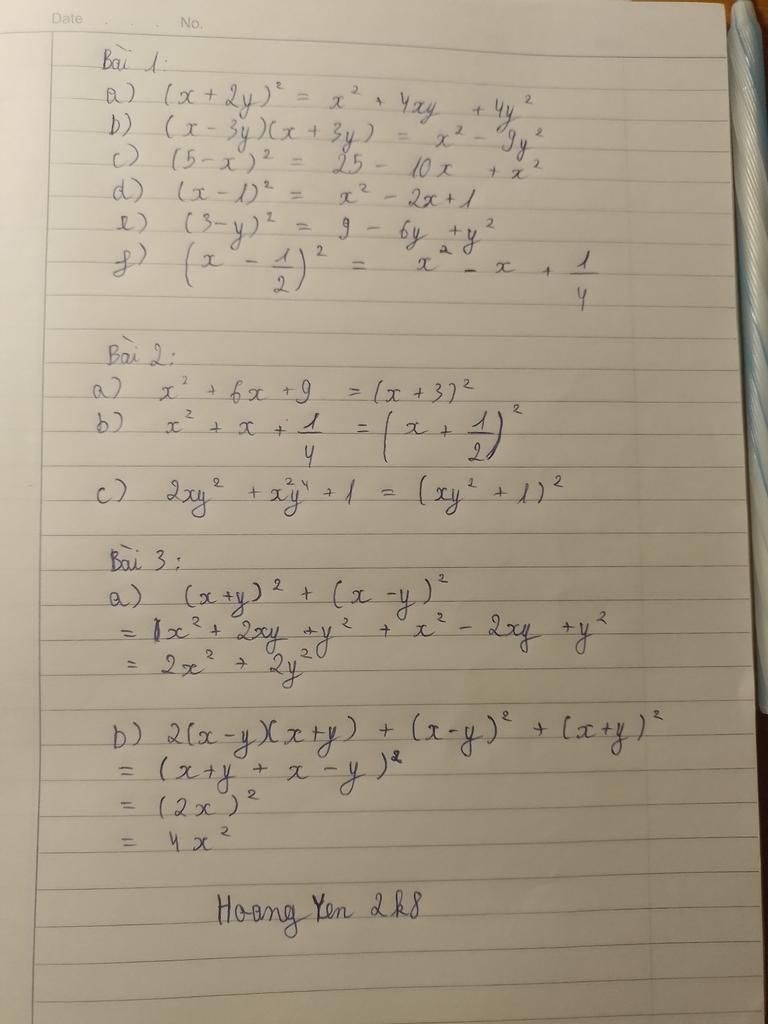 Date . . . No.
Bài 1:
a) (x + 2y)² = x² + 4xy + 4y²
b) (x - 3y)(x + 3y) = x² - 9y²
c) (5 - x)² = 25 - 10x + x²
d) (x - 1)² = x² - 2x + 1
e) (3 - y)² = 9 - 6y + y²
f) (x - 1/2)² = x² - x + 1/4
Bài 2:
a) x² + 6x + 9 = (x + 3)²
b) x² + x + 1/4 = (x + 1/2)²
c) 2xy² + x²y⁴ + 1 = (xy² + 1)²
Bài 3:
a) (x + y)² + (x - y)²
= x² + 2xy + y² + x² - 2xy + y²
= 2x² + 2y²
b) 2(x - y)(x + y) + (x - y)² + (x + y)²
= (x + y + x - y)²
= (2x)²
= 4x²
Hoang Yen 2k8